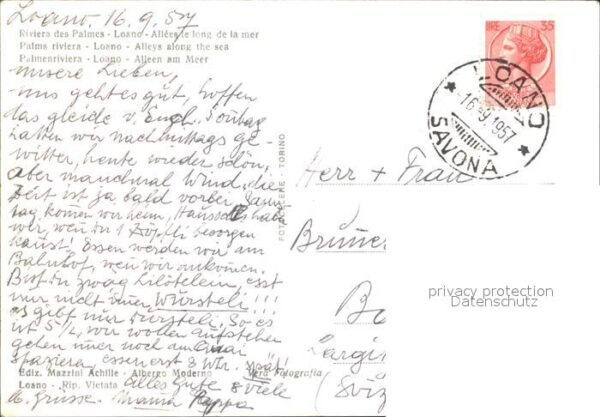 Loano, 16. 9. 57
Riviera des Palmes - Loano - Allées le long de la mer
Palms riviera - Loano - Alleys along the sea
Palmenriviera - Loano - Alleen am Meer
unsere Lieben,
uns geht es gut, hoffen
das gleiche v. Euch. Sontag
hatten wir nachmittags ge-
witter, heute wieder schön,
aber manchmal Wind, die
Zeit ist ja bald vorbei. Sams
tag komen wir heim,
wir, wen du 1 Zöpfli besorgen
kanst! Essen werden wir am
Bahnhof, wen wir ankomen.
Bist du zwäg esst
nur nicht imer Würsteli!!!
es gibt nur Würsteli. So es
ist 5 1/2, wir wollen aufstehen
gehen nur noch am
spaziera, essen erst 8 Uhr. spät!
Ediz. Mazzini Achille - Albergo Moderno Vera Fotografia
Loano - Rip. Vietata Alles Gute & viele
Grüsse. Mama Pappa
FOTOCELERE - TORINO
LIRE 35
LOANO
16-9.1957
SAVONA
Herr + Frau
Brüner
privacy protection
Datenschutz
(Sviz